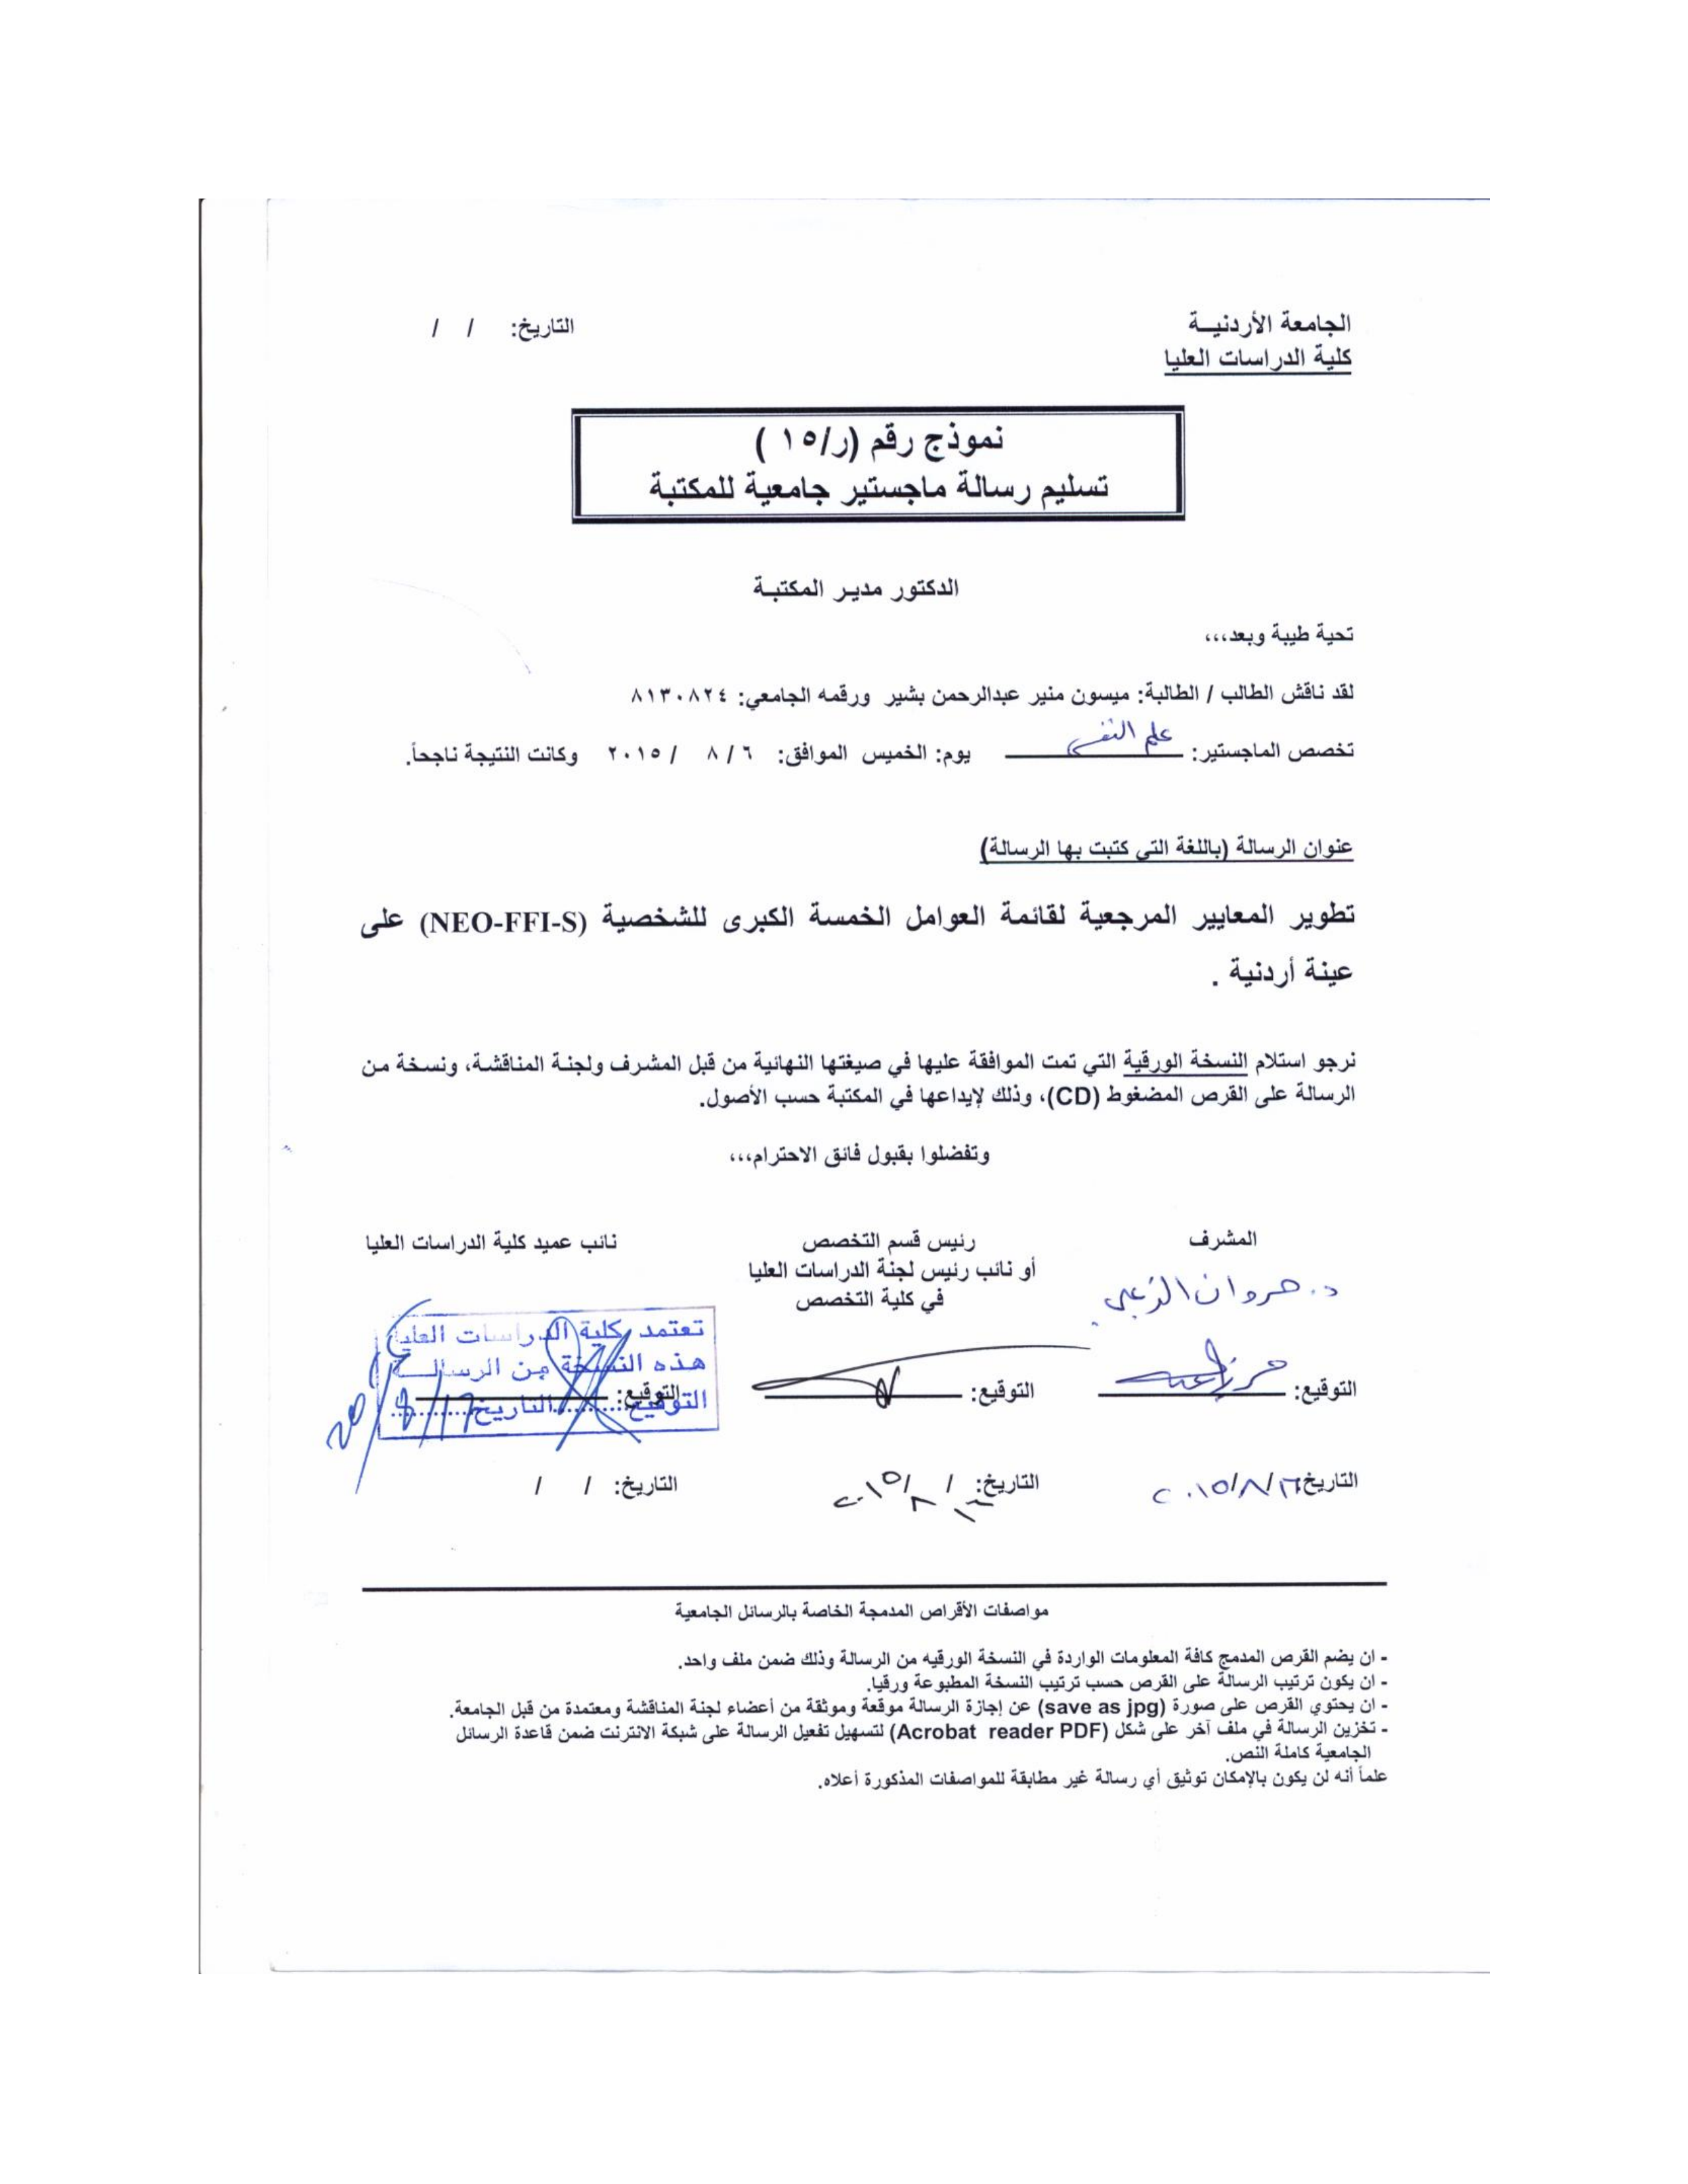 الجامعة الأردنيـة
التاريخ: / /
كلية الدراسات العليا
نموذج رقم (ر/١٥ )
تسليم رسالة ماجستير جامعية للمكتبة
الدكتور مدير المكتبـة
تحية طيبة وبعد،،،
لقد ناقش الطالب / الطالبة: ميسون منير عبدالرحمن بشير ورقمه الجامعي: ٨١٣٠٨٢٤
تخصص الماجستير: علم النفس يوم: الخميس الموافق: ٦ / ٨ / ٢٠١٥ وكانت النتيجة ناجحاً.
عنوان الرسالة (باللغة التي كتبت بها الرسالة)
تطوير المعايير المرجعية لقائمة العوامل الخمسة الكبرى للشخصية (NEO-FFI-S) على
عينة أردنية .
نرجو استلام النسخة الورقية التي تمت الموافقة عليها في صيغتها النهائية من قبل المشرف ولجنة المناقشة، ونسخة من
الرسالة على القرص المضغوط (CD)، وذلك لإيداعها في المكتبة حسب الأصول.
وتفضلوا بقبول فائق الاحترام،،،
المشرف
د. مروان الزعبي
التوقيع:
التاريخ ١٦/٨/٢٠١٥
رئيس قسم التخصص
أو نائب رئيس لجنة الدراسات العليا
في كلية التخصص
التوقيع:
التاريخ: ١٦/٨/٢٠١٥
نائب عميد كلية الدراسات العليا
تعتمد كلية الدراسات العليا
هذه النسخة من الرسالـــة
التوقيع:
التوقيع..........التاريخ..........
التاريخ: / /
مواصفات الأقراص المدمجة الخاصة بالرسائل الجامعية
- ان يضم القرص المدمج كافة المعلومات الواردة في النسخة الورقيه من الرسالة وذلك ضمن ملف واحد.
- ان يكون ترتيب الرسالة على القرص حسب ترتيب النسخة المطبوعة ورقيا.
- ان يحتوي القرص على صورة (save as jpg) عن إجازة الرسالة موقعة وموثقة من أعضاء لجنة المناقشة ومعتمدة من قبل الجامعة.
- تخزين الرسالة في ملف آخر على شكل (Acrobat reader PDF) لتسهيل تفعيل الرسالة على شبكة الانترنت ضمن قاعدة الرسائل
الجامعية كاملة النص.
علماً أنه لن يكون بالإمكان توثيق أي رسالة غير مطابقة للمواصفات المذكورة أعلاه.